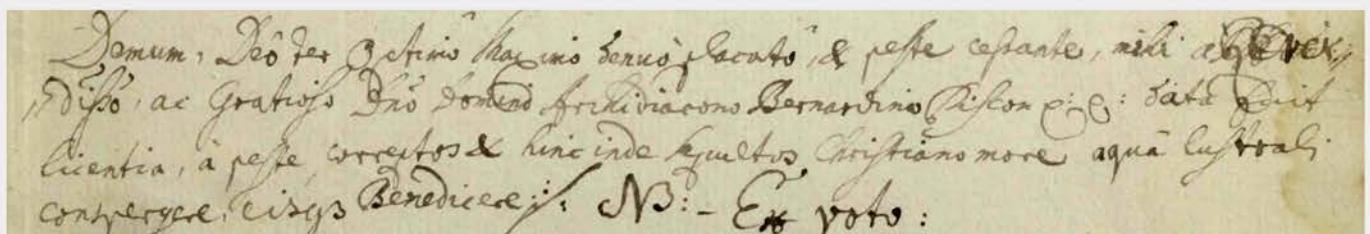 Demum, Deô ter Optimô Maximô denuò placatô, & peste cessante, mihi a Reve-
rdissô, ac Gratioso Dnô Domino Archidiacono Bernardino : data fuit
licentia, à peste, correptos & hinc inde sepultos Christiano more aquâ lustrali
conspergere, eisq3 Benedicere :/: NB: - Ex voto :